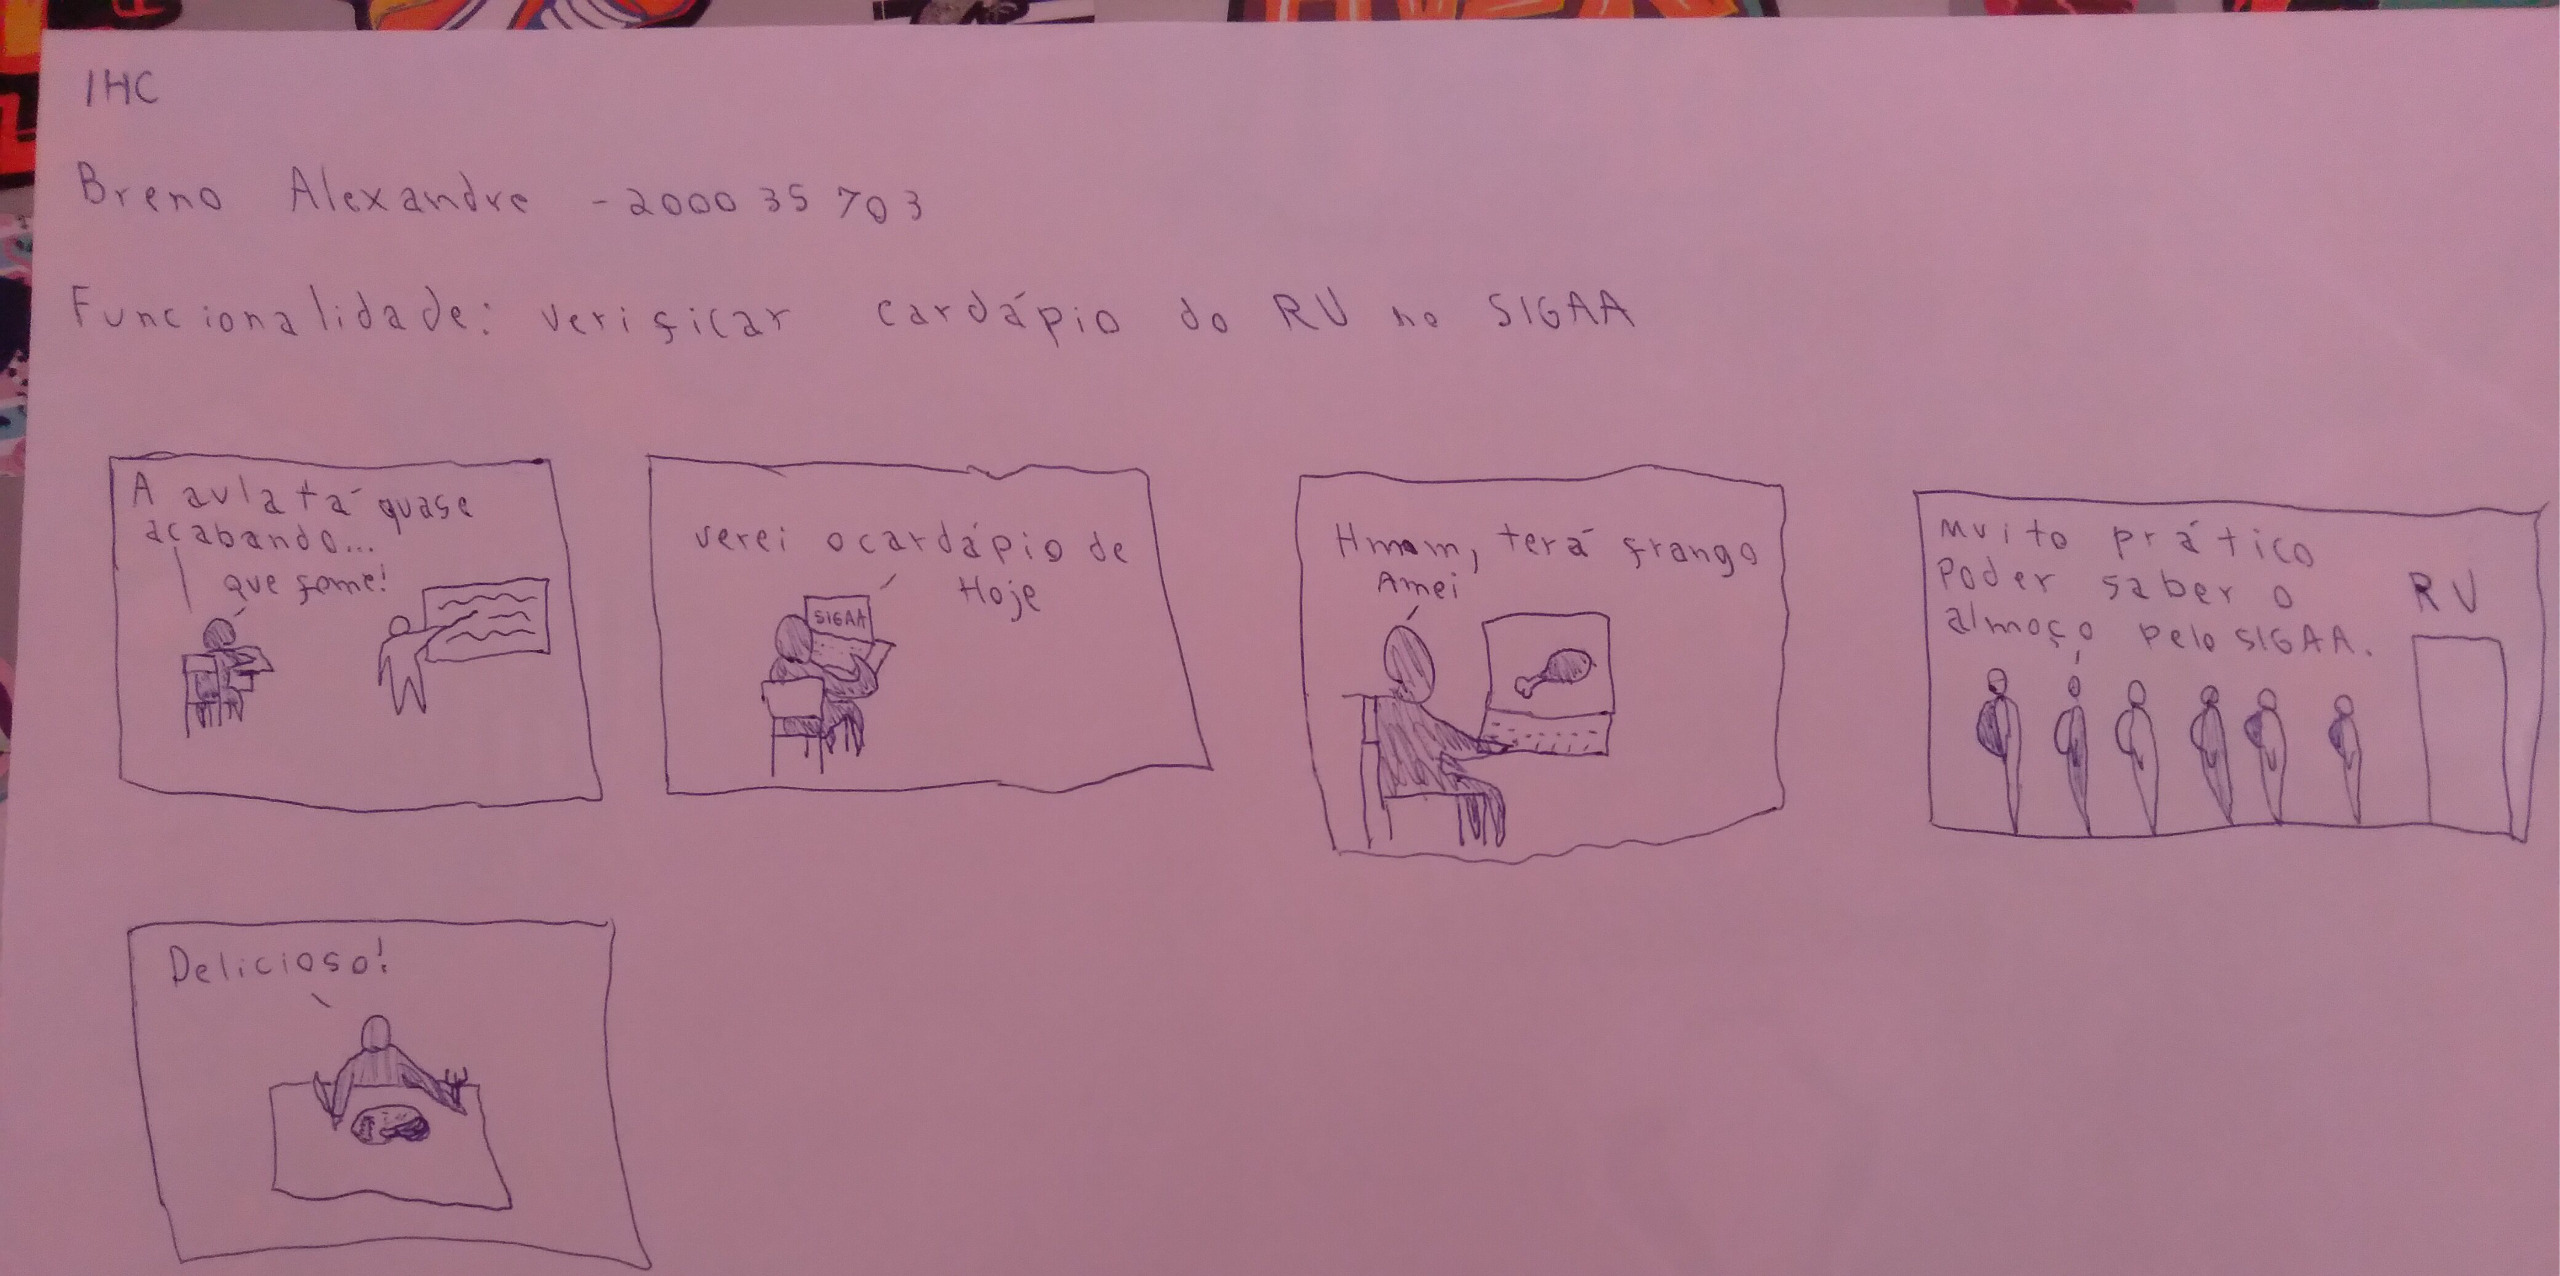 IHC
Breno Alexandre - 200035703
Funcionalidade: verificar cardápio do RU no SIGAA
A aula tá quase
acabando...
que fome!
verei o cardápio de
Hoje
SIGAA
Hmmm, terá frango
Amei
Muito prático
Poder saber o
almoço pelo SIGAA.
RU
Delicioso!